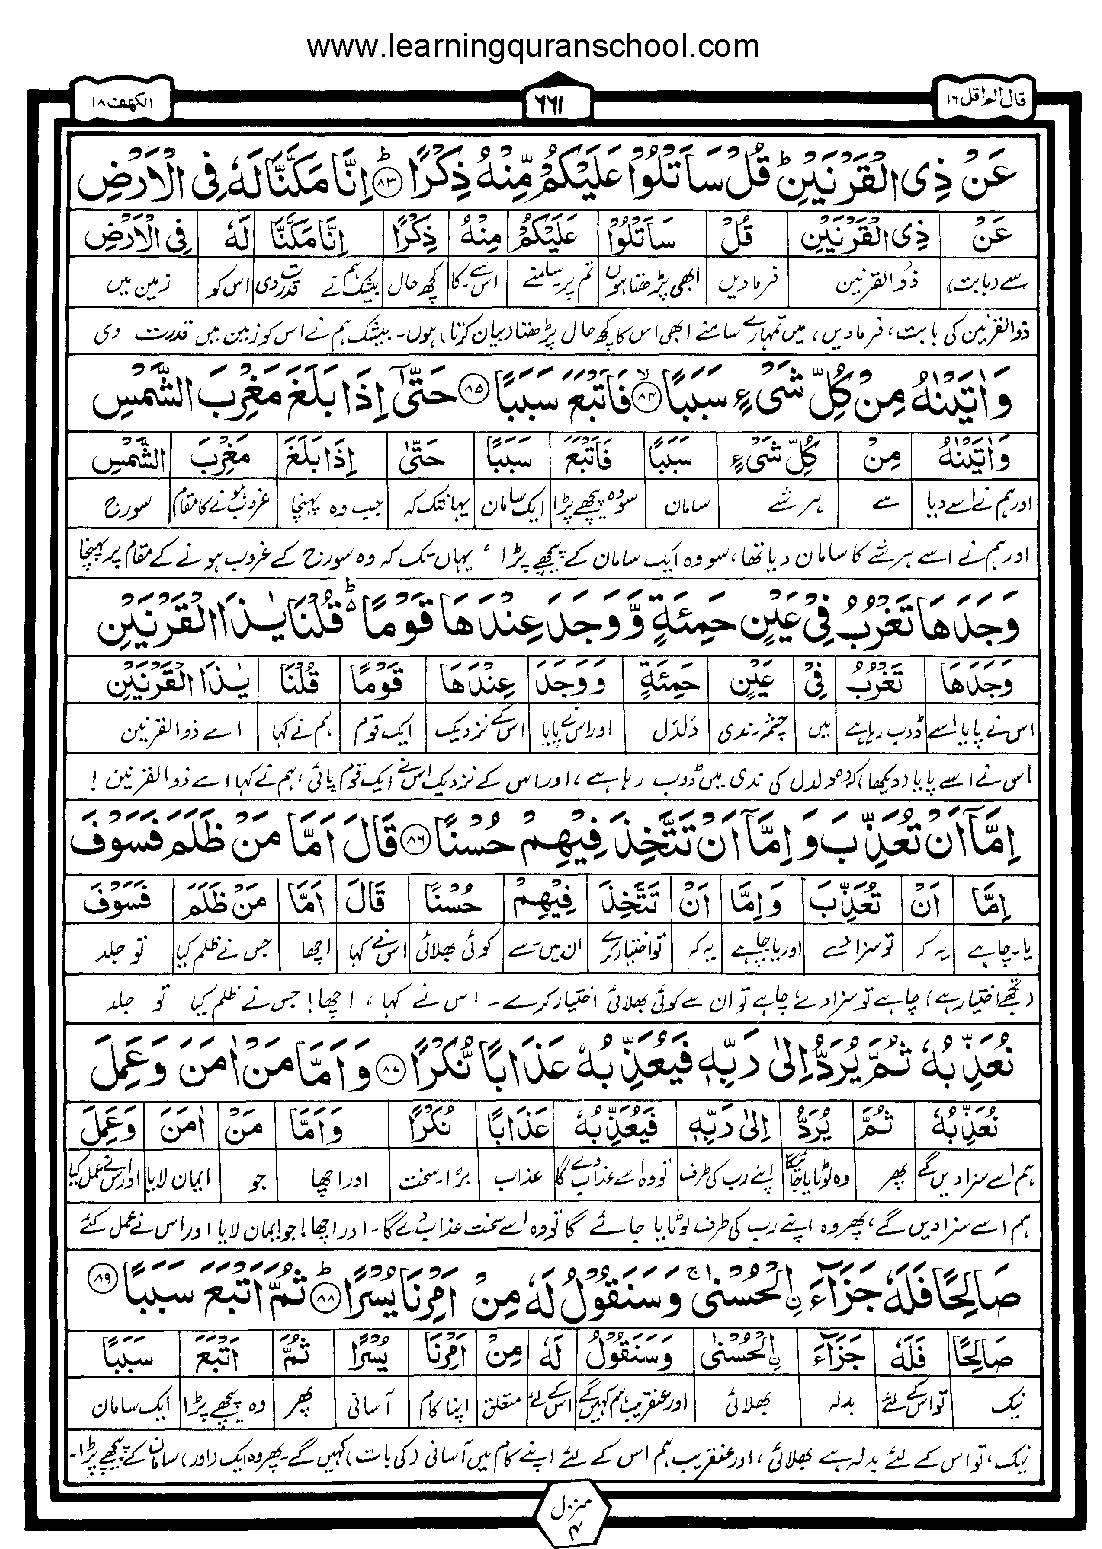 www.learningquranschool.com
قال الم اقل ١٦
٦٦١
الكهف ١٨
عَنْ ذِى الْقَرْنَيْنِ ؕ قُلْ سَاَتْلُوْا عَلَيْكُمْ مِّنْهُ ذِكْرًا ؕ ﴿٨٣﴾ اِنَّا مَكَّنَّا لَهٗ فِى الْاَرْضِ
عَنْ ذِى الْقَرْنَيْنِ قُلْ سَاَتْلُوْا عَلَيْكُمْ مِنْهُ ذِكْرًا اِنَّا مَكَّنَّا لَهٗ فِى الْاَرْضِ
سے (بابت) ذوالقرنین فرمادیں ابھی پڑھتا ہوں تم پر سامنے اس سے۔کا کچھ حال بیشک ہم نے قدرت دی اس کو زمین میں
ذوالقرنین کی بابت، فرمادیں، میں تمہارے سامنے ابھی اس کا کچھ حال پڑھتا (بیان کرتا) ہوں۔ بیشک ہم نے اس کو زمین میں قدرت دی
وَاٰتَيْنٰهُ مِنْ كُلِّ شَىْءٍ سَبَبًا ۙ ﴿٨٤﴾ فَاَتْبَعَ سَبَبًا ﴿٨٥﴾ حَتّٰىٓ اِذَا بَلَغَ مَغْرِبَ الشَّمْسِ
وَاٰتَيْنٰهُ مِنْ كُلِّ شَىْءٍ سَبَبًا فَاَتْبَعَ سَبَبًا حَتّٰى اِذَا بَلَغَ مَغْرِبَ الشَّمْسِ
اور ہم نے اسے دیا سے ہر شے سامان سو وہ پیچھے پڑا ایک سامان یہانتک کہ جب وہ پہنچا غروب ہونے کا مقام سورج
اور ہم نے اسے ہر شے کا سامان دیا تھا، سو وہ ایک سامان کے پیچھے پڑا، یہاں تک کہ وہ سورج کے غروب ہونے کے مقام پر پہنچا
وَجَدَهَا تَغْرُبُ فِىْ عَيْنٍ حَمِئَةٍ وَّوَجَدَ عِنْدَهَا قَوْمًا ؕ۬ قُلْنَا يٰذَا الْقَرْنَيْنِ
وَجَدَهَا تَغْرُبُ فِىْ عَيْنٍ حَمِئَةٍ وَوَجَدَ عِنْدَهَا قَوْمًا قُلْنَا يٰذَا الْقَرْنَيْنِ
اس نے پایا اسے ڈوب رہا ہے میں چشمہ۔ندی دلدل اور اس نے پایا اس کے نزدیک ایک قوم ہم نے کہا اے ذوالقرنین
اس نے اسے پایا (دیکھا) کہ وہ دلدل کی ندی میں ڈوب رہا ہے، اور اس کے نزدیک اس نے ایک قوم پائی، ہم نے کہا اے ذوالقرنین !
اِمَّاۤ اَنْ تُعَذِّبَ وَاِمَّاۤ اَنْ تَتَّخِذَ فِيْهِمْ حُسْنًا ﴿٨٦﴾ قَالَ اَمَّا مَنْ ظَلَمَ فَسَوْفَ
اِمَّا اَنْ تُعَذِّبَ وَاِمَّا اَنْ تَتَّخِذَ فِيْهِمْ حُسْنًا قَالَ اَمَّا مَنْ ظَلَمَ فَسَوْفَ
یا۔چاہے یہ کہ تو سزا دے اور یا چاہے یہ کہ تو اختیار کرے ان میں سے کوئی بھلائی اس نے کہا اچھا جس نے ظلم کیا تو جلد
(تجھے اختیار ہے) چاہے تو سزا دے چاہے تو ان سے کوئی بھلائی اختیار کرے۔ اس نے کہا، اچھا! جس نے ظلم کیا تو جلد
نُعَذِّبُهٗ ثُمَّ يُرَدُّ اِلٰى رَبِّهٖ فَيُعَذِّبُهٗ عَذَابًا نُّكْرًا ﴿٨٧﴾ وَاَمَّا مَنْ اٰمَنَ وَعَمِلَ
نُعَذِّبُهٗ ثُمَّ يُرَدُّ اِلٰى رَبِّهٖ فَيُعَذِّبُهٗ عَذَابًا نُكْرًا وَاَمَّا مَنْ اٰمَنَ وَعَمِلَ
ہم اسے سزا دیں گے پھر وہ لوٹایا جائیگا اپنے رب کی طرف تو وہ اسے عذاب دے گا عذاب بڑا۔سخت اور اچھا جو ایمان لایا اور اس نے عمل کیا
ہم اسے سزا دیں گے، پھر وہ اپنے رب کی طرف لوٹایا جائے گا تو وہ اسے سخت عذاب دے گا۔ اور اچھا! جو ایمان لایا اور اس نے عمل کئے
صَالِحًا فَلَهٗ جَزَآءَ ۨالْحُسْنٰى ۚ وَسَنَقُوْلُ لَهٗ مِنْ اَمْرِنَا يُسْرًا ؕ ﴿٨٨﴾ ثُمَّ اَتْبَعَ سَبَبًا ﴿٨٩﴾
صَالِحًا فَلَهٗ جَزَآءَ ۨالْحُسْنٰى وَسَنَقُوْلُ لَهٗ مِنْ اَمْرِنَا يُسْرًا ثُمَّ اَتْبَعَ سَبَبًا
نیک تو اس کے لئے بدلہ بھلائی اور عنقریب ہم کہیں گے اس کے لئے متعلق اپنا کام آسانی پھر وہ پیچھے پڑا ایک سامان
نیک، تو اس کے لئے بدلہ ہے بھلائی، اور عنقریب ہم اس کے لئے اپنے کام میں آسانی (کی بات) کہیں گے۔ پھر وہ ایک (اور) سامان کے پیچھے پڑا۔
منزل ٤